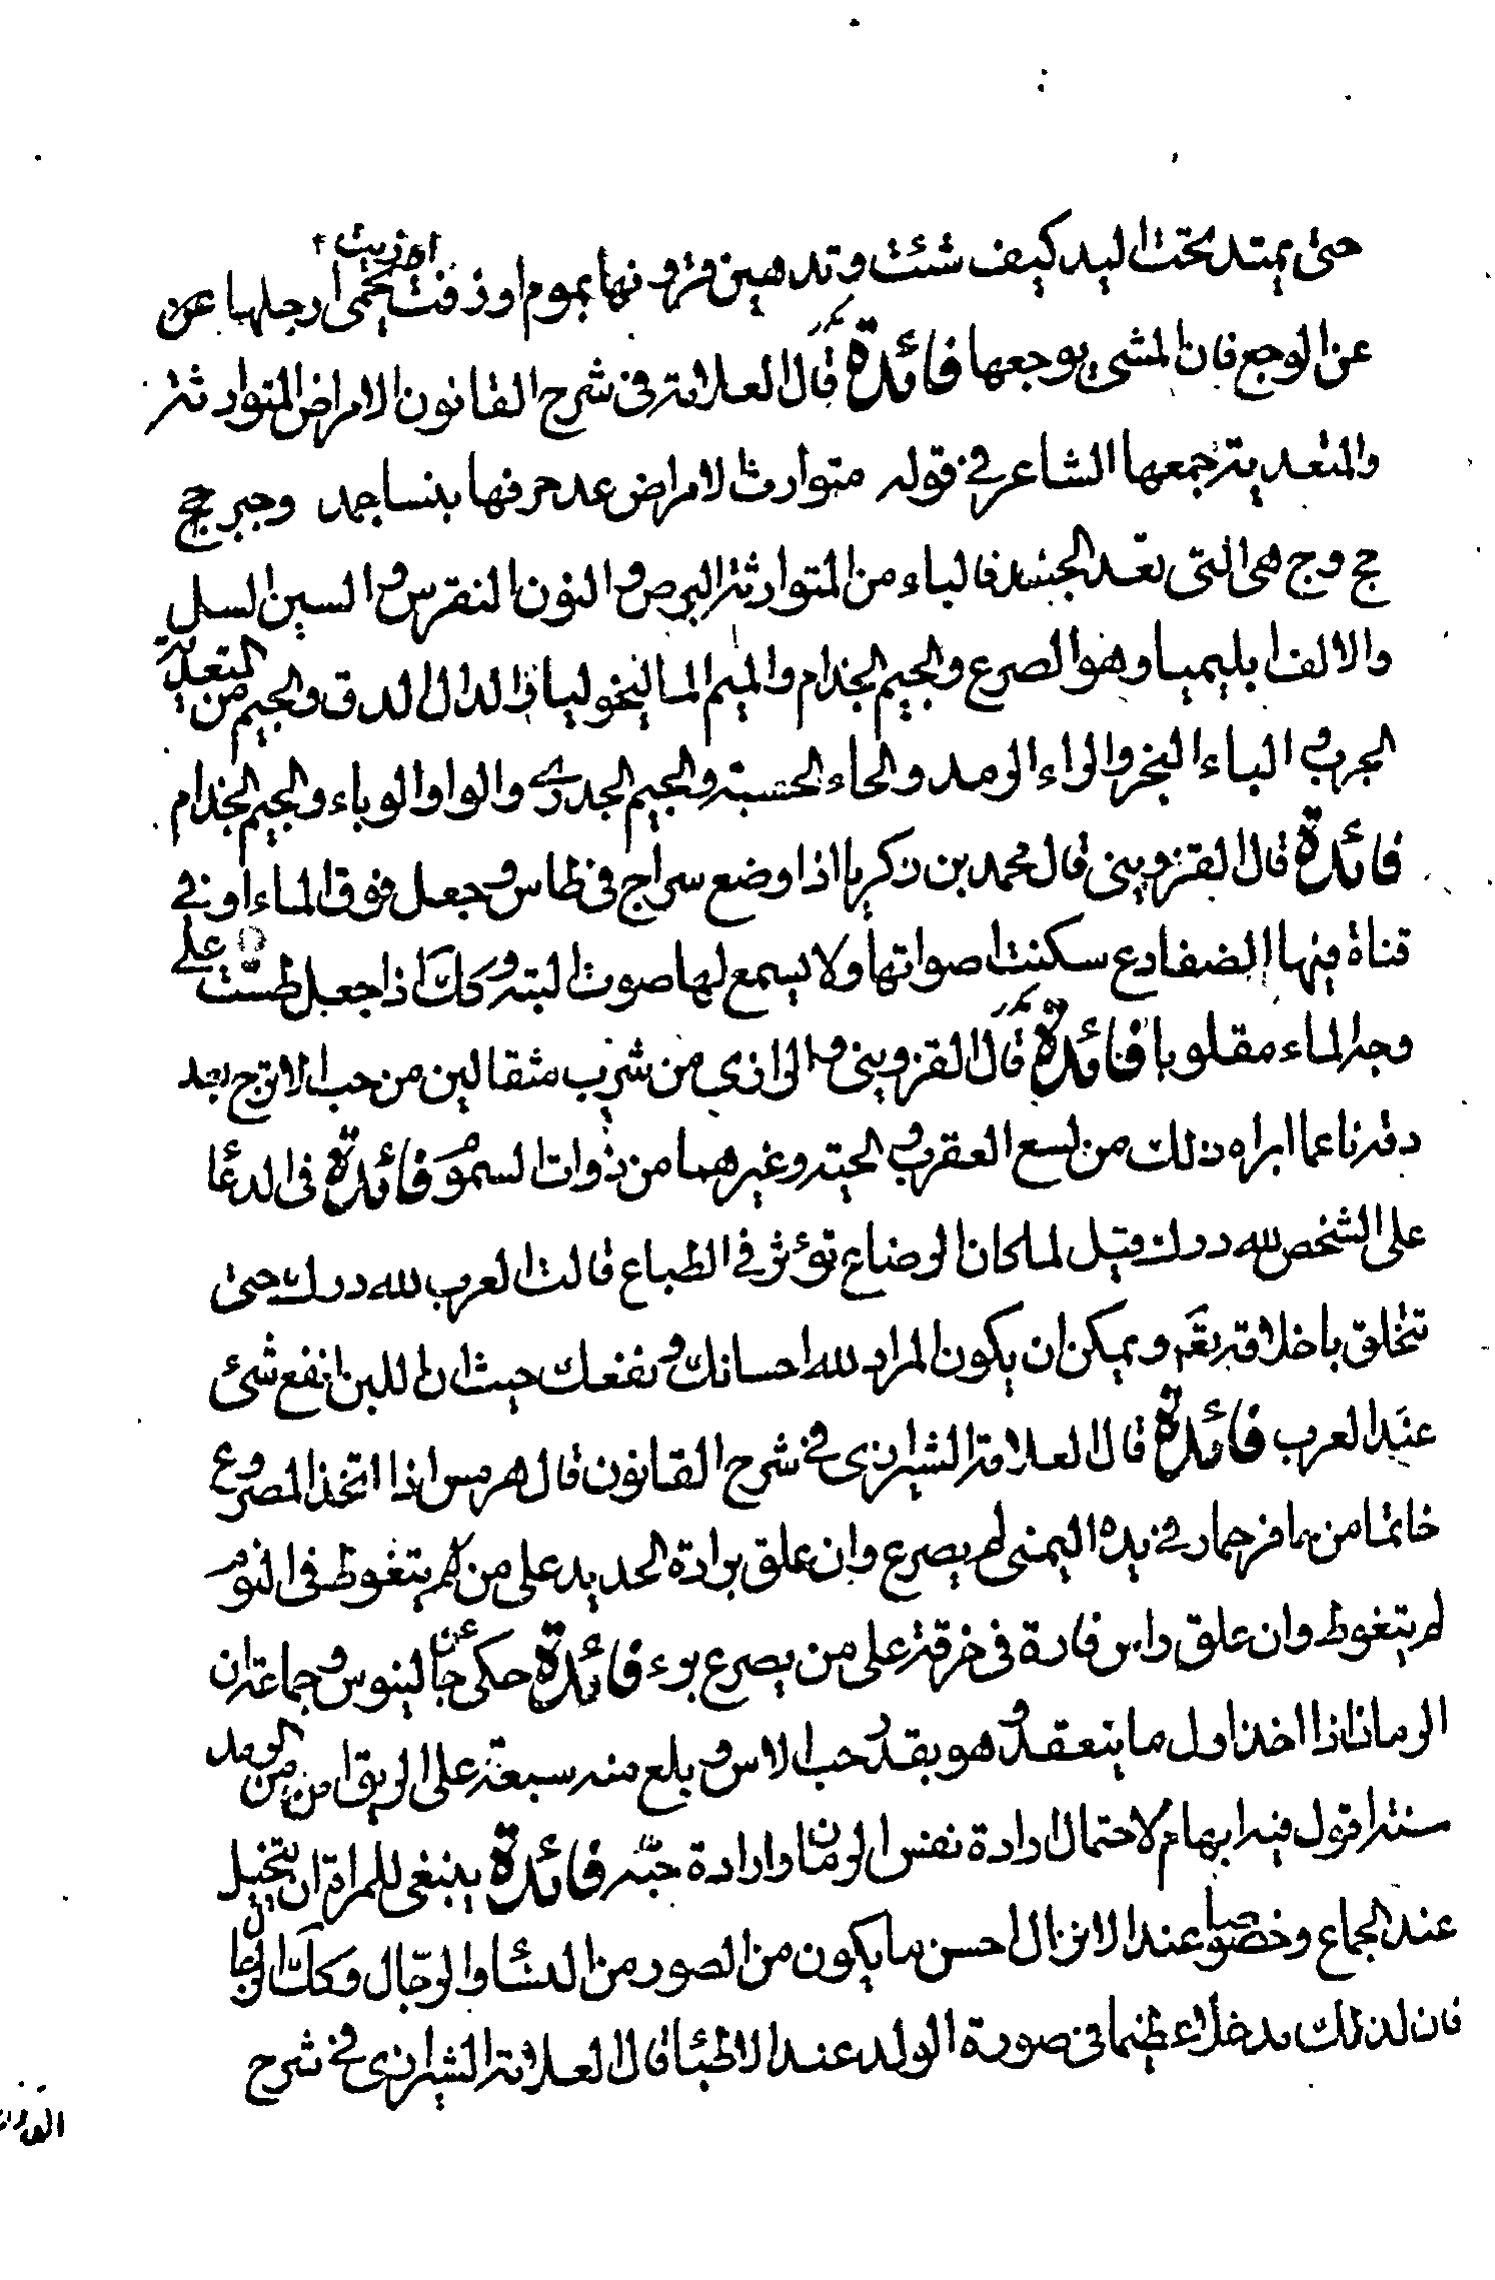 حتى يمتد تحت اليد كيف شئت وتدهين قرونها بموم اوزفت اوزيت يحمى ارجلها عن
عن الوجع فان المشى يوجعها فائدة قال العلامة فى شرح القانون الامراض المتوارثة
والمتعدية جمعها الشاعر فى قوله متوارث الامراض عد حرفها بنساجمد وجبر حج
ج وج هى التى تعد الجنسد فالباء من المتوارثة البرص و النون النقرس و السين السل
والالف ابليميا وهو الصرع والجيم الجذام والميم الماليخوليا والدال الدق والجيم من المتعدية
الجرب و الباء البخر والراء الرمد والحاء الحصبة والجيم الجدرى والواو الوباء والجيم الجذام
فائدة قال القزوينى قال محمد بن زكريا اذا وضع سراج فى طاس وجعل فوق الماء او فى
قناة فيها الضفادع سكنت اصواتها ولا يسمع لها صوت البتة وكك اذا جعل طست على
وجه الماء مقلوبا فائدة قال القزوينى والرازى من شرب مثقالين من حب الاترج بعد
دقه ناعما ابراه ذلك من لسع العقرب و الحية وغيرهما من ذوات السموم فائدة فى الدعا
على الشخص لله درك قيل لما كان الرضاع تؤثر فى الطباع قالت العرب لله درك حتى
تتخلق باخلاقه تقم ويمكن ان يكون المراد لله احسانك ونفعك حيث ان اللبن انفع شئ
عند العرب فائدة قال العلامة الشيرازى فى شرح القانون قال هرمس اذا اتخذ المصروع
خاتما من حافر حمار فى يده اليمنى لم يصرع وان علق برادة الحديد على من لم يتغوط فى النوم
لم يتغوط وان علق راس فارة فى خرقة على من يصرع برء فائدة حكى عن جالينوس وجماعة ان
الرمان اذا اخذ اول ما ينعقد وهو بقدر حب الاس وبلع منه سبعة على الريق امن من الرمد
سنته اقول فيه ابهام لاحتمال ارادة نفس الرمان او ارادة حبه فائدة ينبغى للمراة ان يتخيل
عند الجماع وخصوصا عند الانزال احسن ما يكون من الصور من النساء والرجال وكك الرجال
فان لذلك مدخلا عظيما فى صورة الولد عند الاطباء قال العلامة الشيرازى فى شرح